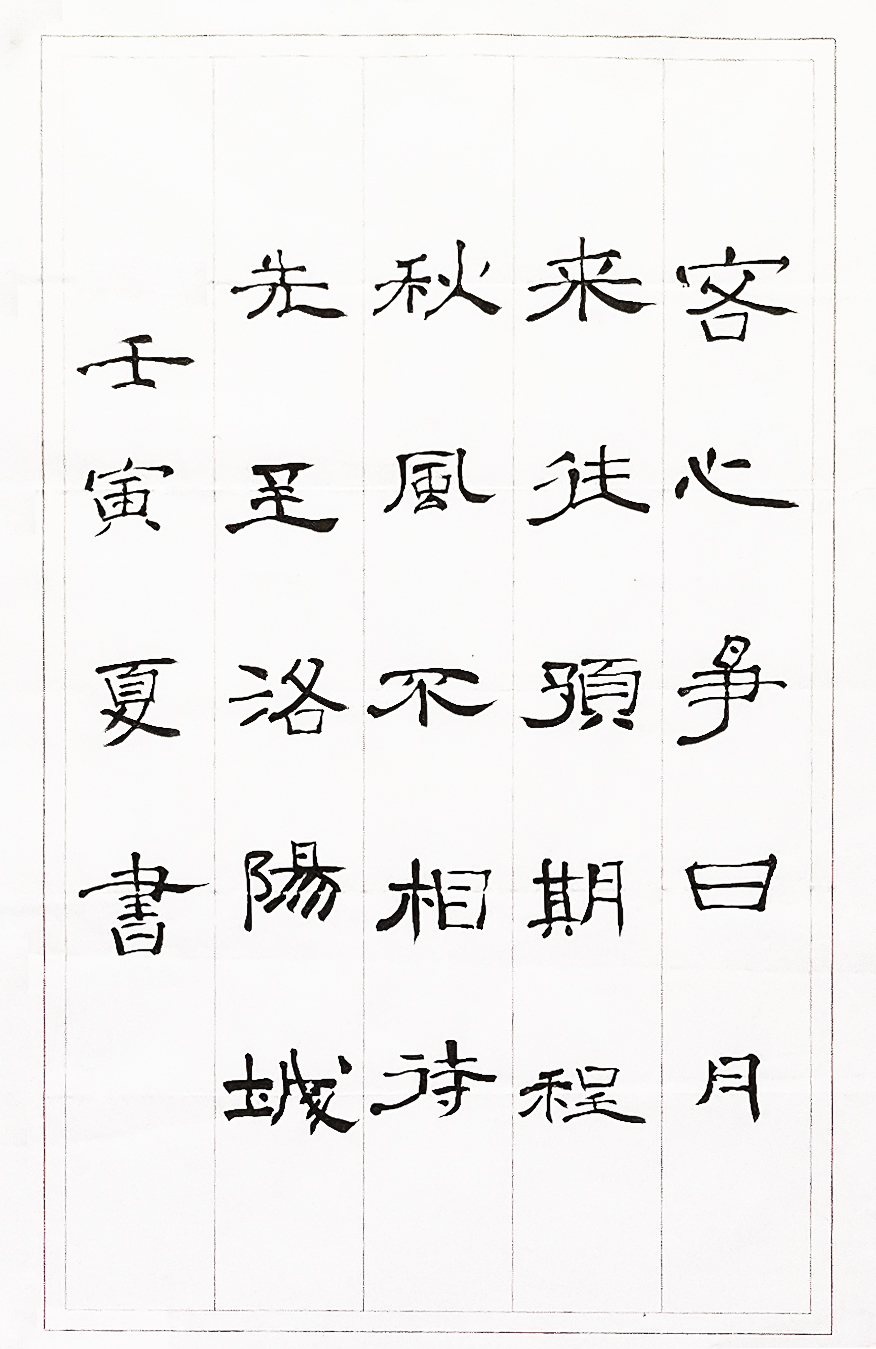 客心爭日月
来往預期程
秋風不相待
先至洛陽城
壬寅夏書